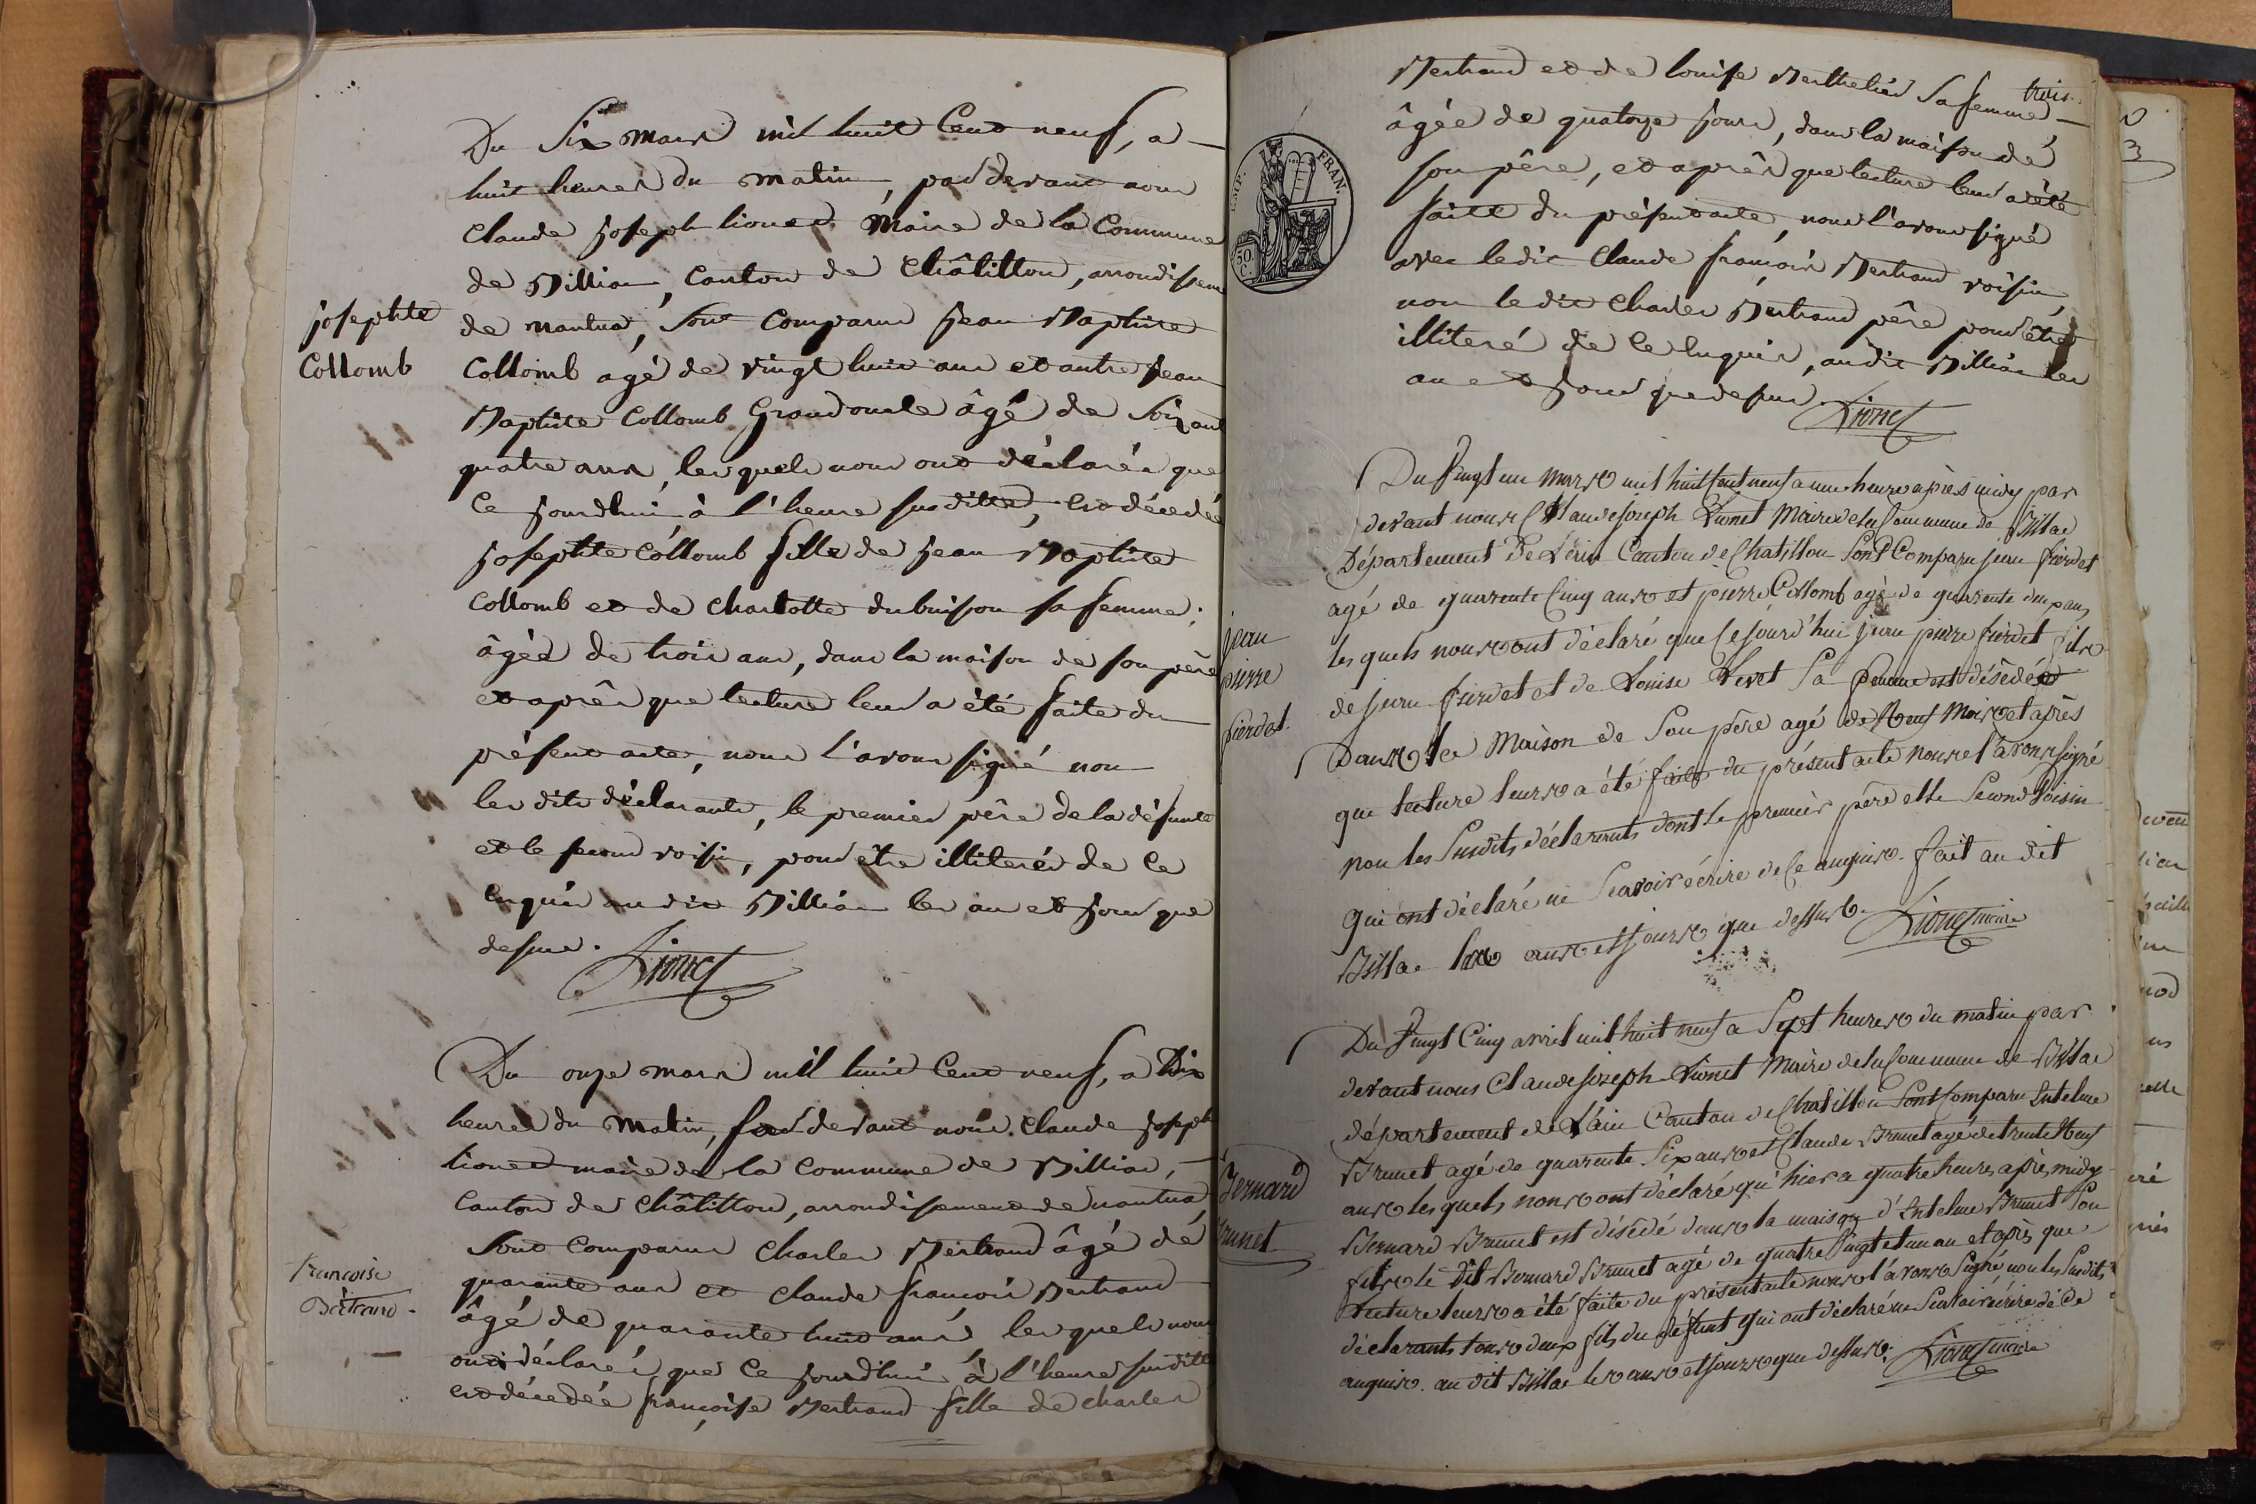 Du Six mars mil huit Cent neuf, a
huit heures du matin, pardevant nous
Claude joseph lionet Maire de la Commune
de Billiac, Canton de Châlitton, arrondissem
josephte
Collomb
de nantua, Sont Comparus jean Baptiste
Collomb agé de vingt huit ans et autre jean
Baptiste Collomb Grand oncle âgé de Soixant
quatre ans, les quels nous ont déclarés que
Ce jourdhui à l'heure susditte, est décedée
josephte Collomb fille de jean Baptiste
Collomb et de Charlotte dubuisson sa femme;
âgée de trois ans, dans la maison de son père
et après que lecture leur a été faite du
présent acte, nous l'avons signé non
les dits déclarants, le premier père de la défunte
et le second voisin, pour être illiterés de ce
enquis au dit Billiac les an et jour que
dessus. Lionet
Du onze mars mil huit Cent neuf, a Dix
heures du Matin, pardevant nous Claude joseph
lionet maire de la Commune de Billiac,
Canton de Châlitton, arrondissement de nantua
Sont Comparus Charles Bertrand âgé de
francoise
Bertrand
quarante ans et Claude françois Bertrand
âgé de quarante huit ans, les quels nous
ont déclarés que Ce jourdhui à l'heure susditte
est décedée françoise Bertrand fille de Charles
trois
Bertrand et de louise Berthelier Sa femme
âgée de quatorze jours, dans la maison de
son père, et après que lecture leur a été
faitte du présent acte, nous l'avons signé
avec ledit Claude françois Bertrand voisin,
non le dit Charles Bertrand père pour être
illiteré de Ce enquis, audit Billiac les
an et jour que dessus. Lionet
EMP. FRAN.
50. C.
Du Vingt un Mars mil huit Cent neuf a une heure après midy par
devant nous Claude joseph Lionet Maire de la Commune de Billac
Département De L'ain Canton de Chatillon Sont Comparu jean fierdet
agé de quarente Cinq ans et pierre Collomb agé de quarente deux ans
jean
pierre
fierdet
les quels nous ont déclaré que Ce jourd'hui jean pierre fierdet fils
de jean fierdet et de Louise Livet Sa femme est déSédé
Dans la Maison de Son père agé de Neuf Mois et après
que lecture leurs a été faite du présent acte nous l'avons signé
non les Susdits déclarants dont le premier père et le Second Voisin
qui ont déclaré ne Scavoir écrire de Ce anquis. fait au dit
Billac les ans et jours que dessus. Lionet maire
Du Vingt Cinq avril mil huit neuf a Sept heures du matin par
devant nous Claude joseph Lionet Maire de la Commune de Billac
département de L'ain Canton de Chatillon Sont Comparu Antelme
Bernard
Brunet
Brunet agé de quarente Six ans et Claude Brunet agé de trente Neuf
ans les quels nous ont déclaré qu'hier a quatre heures après midy
Bernard Brunet est déSédé dans la maison d'Antelme Brunet Son
fils le dit Bernard Brunet agé de quatre Vingt et un an et après que
lecture leurs a été faite du présent acte nous l'avons Signé non les Susdits
déclarants tous deux fils du défunt qui ont déclaré ne Scavoir écrire de Ce
anquis. au dit Billac les ans et jours que dessus. Lionet maire